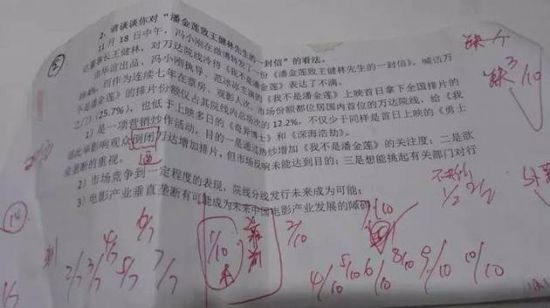 2. 请谈谈你对“潘金莲致王健林先生的一封信”的看法。
11月18日中午，冯小刚在微博转发了一份《潘金莲致王健林先生的一封信》，喊话万
达董事长王健林，对万达院线冷待《我不是潘金莲》表达了不满。
由华谊出品、冯小刚执导、范冰冰主演的《我不是潘金莲》上映首日拿下全国排片的
39.4%，可作为连续七年在票房、观影人次、市场份额都位居国内首位的万达院线，给《我
不是潘金莲》的排片份额仅占其院线内总场次的12.2%，不仅少于同样是首日上映的《勇士
之门》（25.7%），也低于上映多日的《奇异博士》和《深海浩劫》。
1）是一项营销炒作活动，目的一是通过热炒增加《我不是潘金莲》的关注度；二是欲
借此举影响观众倒闭万达增加排片，但市场反响未能达到目的；三是想能挑起有关部门对行
业垄断的重视。
2）市场竞争到一定程度的表现，院线分线发行未来成为可能；
3）电影产业垂直垄断有可能成为未来中国电影产业发展的障碍。
缺3/10
逼
1/2
14
6/7
4/7
2/7 3/7
5/7
7/7
1/10
2/10
4/10 5/10 6/10 8/10 9/10 10/10